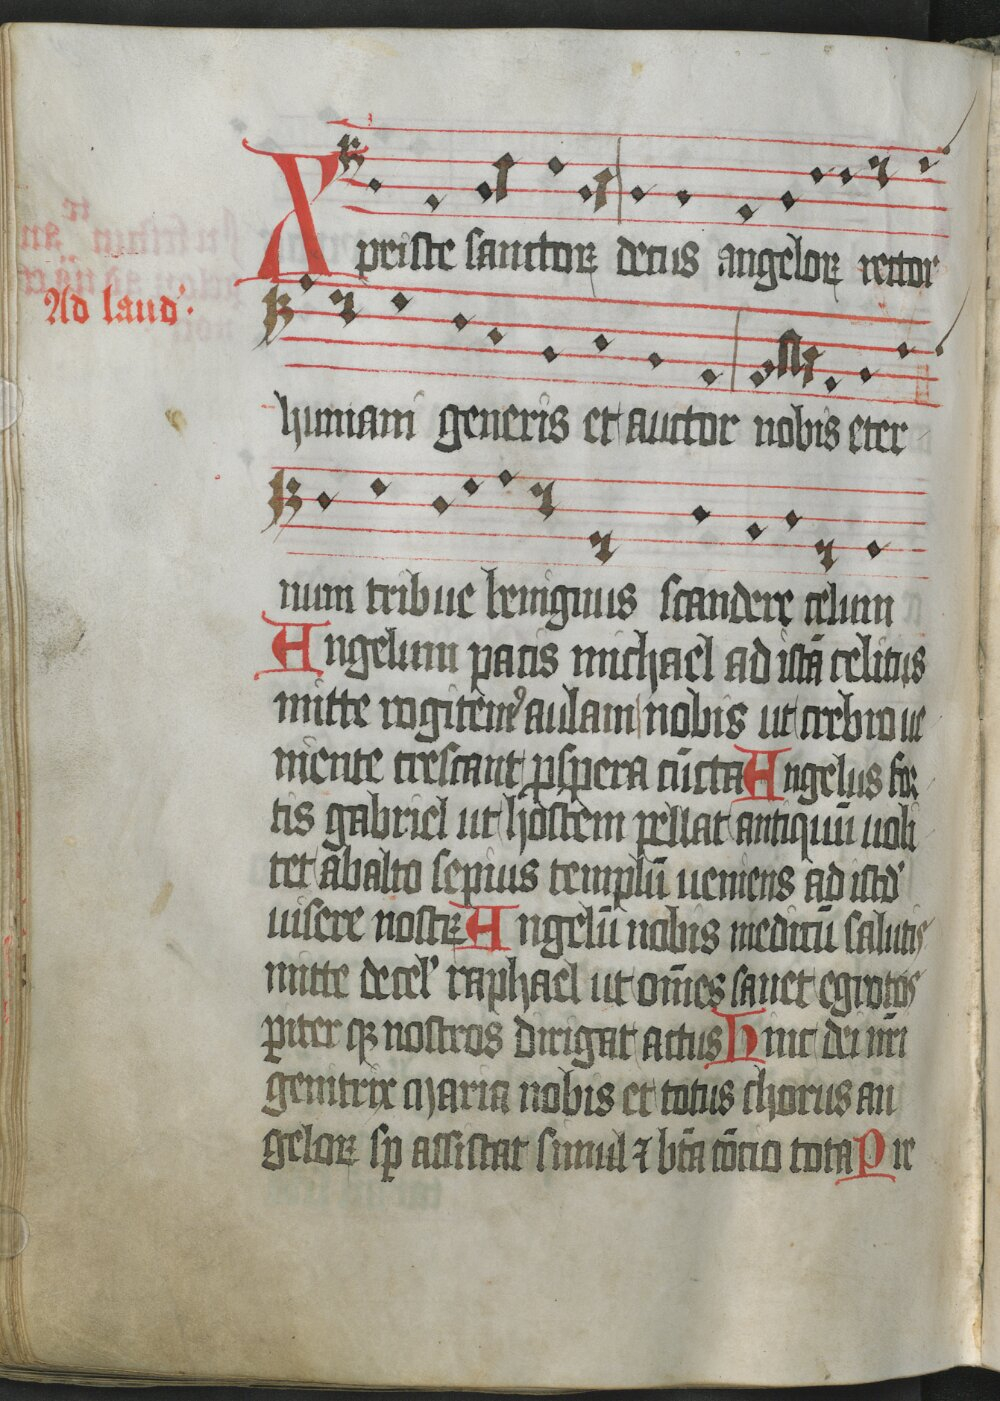 Xpriste sanctoꝝ decus angeloꝝ rector
Ad laud'·
humani generis et auctor nobis eter
num tribue benignus scandere celum
Angelum pacis michael ad istā celitus
mitte rogitem᷒ aulam nobis ut crebro ue
niente crescant ꝓspera cūcta Angelus for
tis gabriel ut hostem pellat antiquū uoli
tet ab alto sepius templū ueniens ad istd'
uisere nostꝝ Angelū nobis medicū salutis
mitte de cel' raphael ut om̄es sanet egrotos
piter qꝫ nostros dirigat actus Hinc dei nr̄i
genitrix maria nobis et totus chorus an
geloꝝ sꝑ assistat simul ⁊ bt̄a cōcio tota Pre